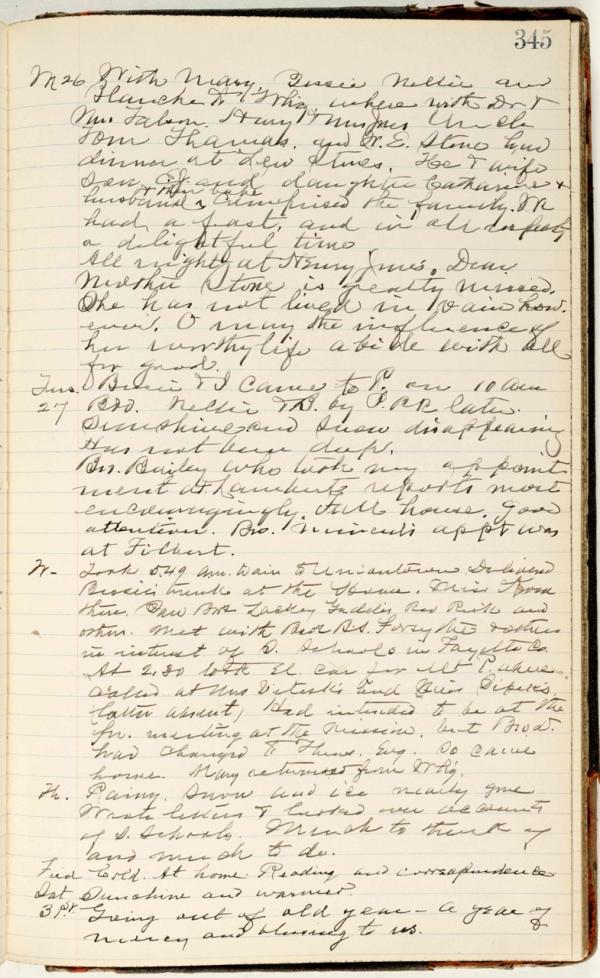 345
M 26 With Mary, Bessie Nellie and
Blanche D to Whg, where with Dr &
Mrs Tolson. Harry H Uncle
Tom Thomas, and W. E. Stone took
dinner at Lew Stones. He & wife
son and daughter Catharine &
husband & their babe comprised the family. We
had a feast, and in all
a delightful time
All night at Henry Jones. Dear
Mother Stone is greatly missed.
She has not lived in vain how-
ever. O may the influence of
her worthy life abide with all
for good.
Tues. Bessie & I came to P. on 10 am
27 B&O. Nellie & B. by P. RR later.
Sunshine and snow disappearing
Has not been deep.
Bro. Bailey who took my appoint
ment at Lamberts reports most
encouragingly. Full house. Good
attention. Bro. appt was
at Filbert.
W- Took 5.49 am. train to Uniontown Delivered
Bessie's trunk at the Home. Miss
there. Saw Bros Lackey Gaddis, Rev and
others. Met with Bro B.S. Forsythe & others
in interest of S. Schools in Fayette Co.
At 2.30 took El. car for Mt P. where
called at Mrs and Miss
(latter absent) Had intended to be at the
meeting at the Mission, but Bro. D.
had changed to Thurs. Evg. So came
home. Mary returned from Whg.
Th. Rainy. Snow and ice nearly gone
Wrote letters & looked over accounts
of S. Schools. Much to think of
and much to do.
Frid Cold. At home Reading and correspondence
Sat Sunshine and warmer.
31st Going out of old year - A year of
mercy and blessing to us.